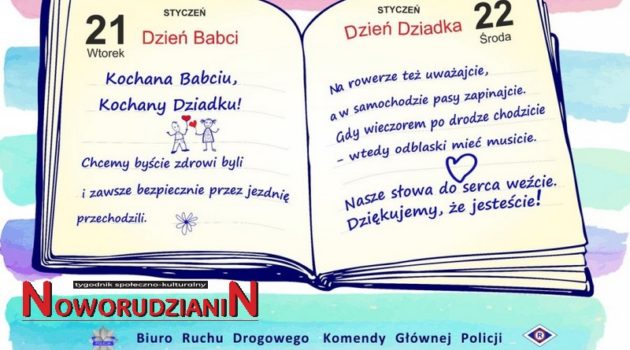 STYCZEŃ
21
Wtorek
Dzień Babci
Kochana Babciu,
Kochany Dziadku!
Chcemy byście zdrowi byli
i zawsze bezpiecznie przez jezdnię
przechodzili.
STYCZEŃ
Dzień Dziadka
22
Środa
Na rowerze też uważajcie,
a w samochodzie pasy zapinajcie.
Gdy wieczorem po drodze chodzicie
- wtedy odblaski mieć musicie.
Nasze słowa do serca weźcie.
Dziękujemy, że jesteście!
tygodnik społeczno-kulturalny
NOWORUDZIANIN
Biuro Ruchu Drogowego Komendy Głównej Policji
R